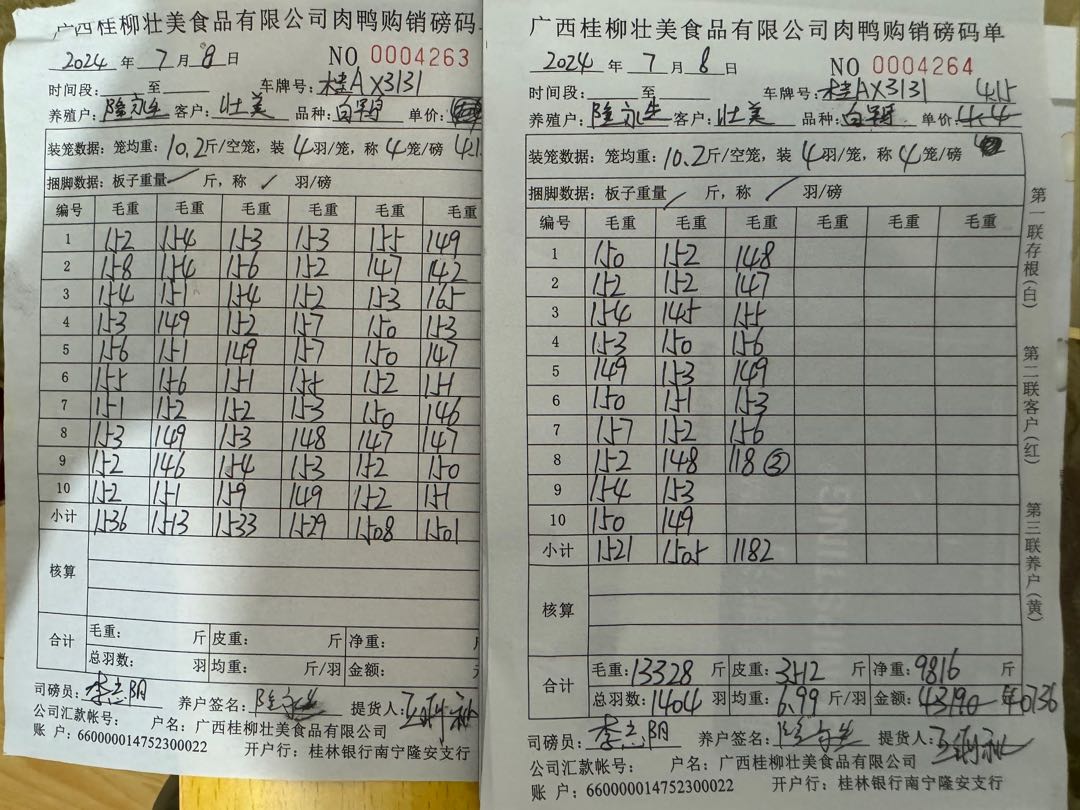 广西桂柳壮美食品有限公司肉鸭购销磅码单
2024 年 7 月 8 日 NO 0004263
时间段: 至 车牌号: 桂AX3131
养殖户: 隆永生 客户: 壮美 品种: 白羽 单价:
装笼数据: 笼均重: 10.2 斤/空笼, 装 4 羽/笼, 称 4 笼/磅
捆脚数据: 板子重量 斤, 称 羽/磅
编号 毛重 毛重 毛重 毛重 毛重 毛重
1 152 154 153 153 155 149
2 158 154 156 152 147 142
3 154 151 154 152 153 165
4 153 149 152 157 150 153
5 156 151 149 157 150 147
6 155 156 151 155 152 151
7 151 152 152 153 150 146
8 153 149 153 148 147 147
9 152 146 154 153 152 150
10 152 151 159 149 152 151
小计 1536 1513 1533 1529 1508 1501
核算
合计 毛重: 斤 皮重: 斤 净重:
总羽数: 羽 均重: 斤/羽 金额:
司磅员: 李志阴 养户签名: 提货人:
公司汇款帐号: 户名: 广西桂柳壮美食品有限公司
账 户: 660000014752300022 开户行: 桂林银行南宁隆安支行
广西桂柳壮美食品有限公司肉鸭购销磅码单
2024 年 7 月 8 日 NO 0004264
时间段: 至 车牌号: 桂AX3131 4.15
养殖户: 隆永生 客户: 壮美 品种: 白羽 单价: 4.4
装笼数据: 笼均重: 10.2 斤/空笼, 装 4 羽/笼, 称 4 笼/磅
捆脚数据: 板子重量 斤, 称 羽/磅
编号 毛重 毛重 毛重 毛重 毛重 毛重
1 150 152 148
2 152 152 147
3 154 145 155
4 153 150 156
5 149 153 149
6 150 151 153
7 157 152 156
8 152 148 118 ③
9 154 153
10 150 149
小计 1521 1505 1182
核算
合计 毛重: 13328 斤 皮重: 3512 斤 净重: 9816 斤
总羽数: 1404 羽 均重: 6.99 斤/羽 金额: 43190 40736
司磅员: 李志阴 养户签名: 提货人:
公司汇款帐号: 户名: 广西桂柳壮美食品有限公司
账 户: 660000014752300022 开户行: 桂林银行南宁隆安支行
第一联存根(白)
第二联客户(红)
第三联养户(黄)